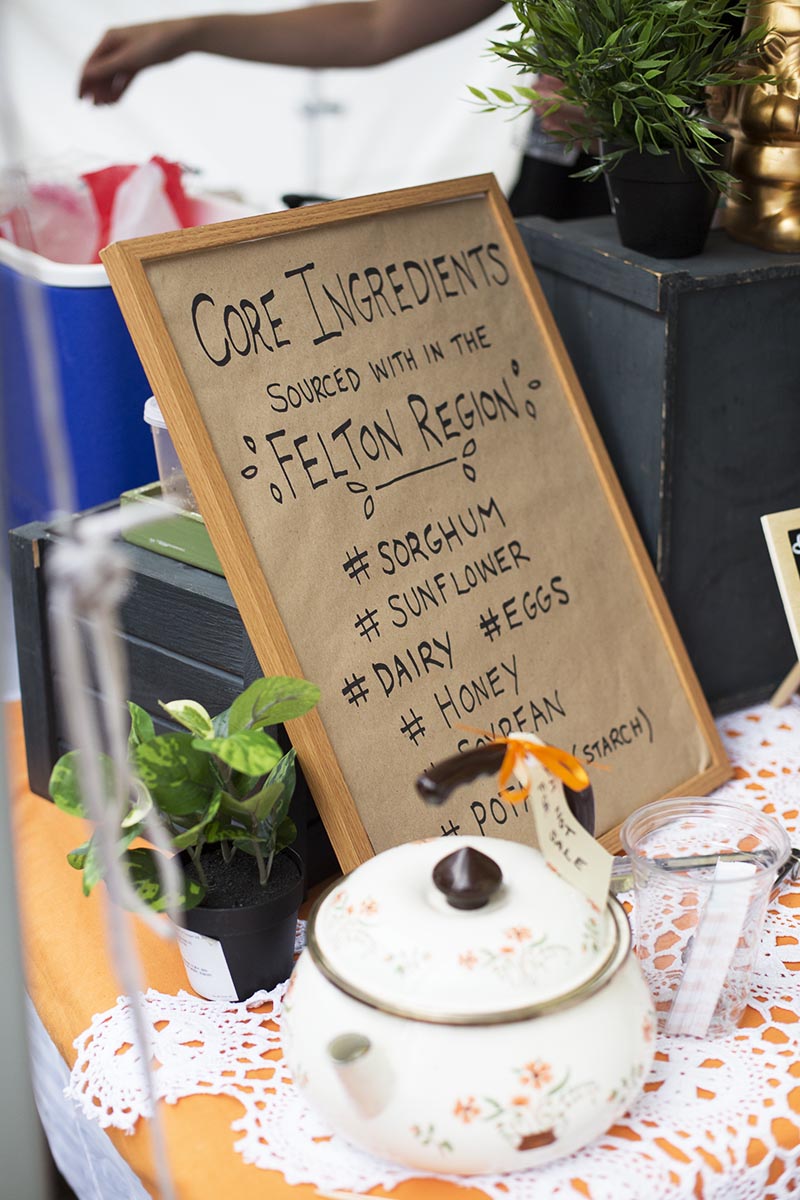 CORE INGREDIENTS
SOURCED WITH IN THE
FELTON REGION
#SORGHUM
#SUNFLOWER
#DAIRY #EGGS
#HONEY
#SOYBEAN
(STARCH)
#
NOT
SALE